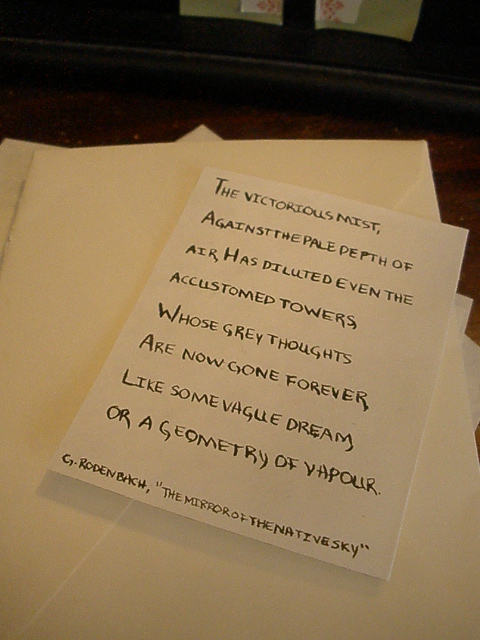 THE VICTORIOUS MIST,
AGAINST THE PALE DEPTH OF
AIR HAS DILUTED EVEN THE
ACCUSTOMED TOWERS
WHOSE GREY THOUGHTS
ARE NOW GONE FOREVER,
LIKE SOME VAGUE DREAM,
OR A GEOMETRY OF VAPOUR.
G. RODENBACH, "THE MIRROR OF THE NATIVE SKY"